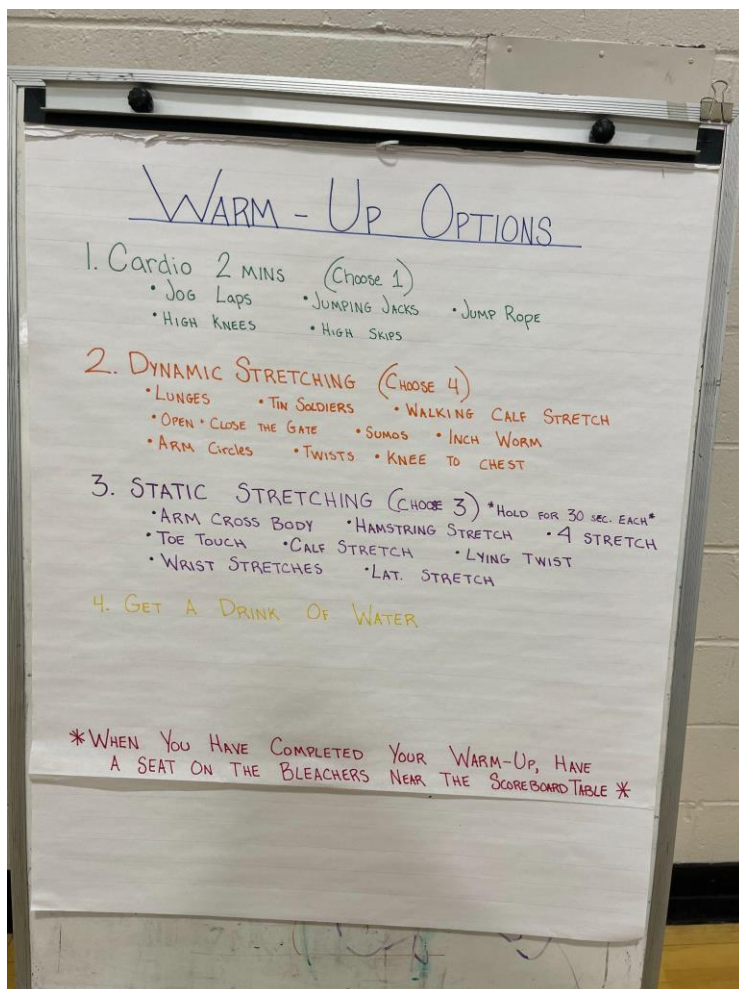 WARM-UP OPTIONS
1. Cardio 2 MINS (Choose 1)
• JOG LAPS • JUMPING JACKS • JUMP ROPE
• HIGH KNEES • HIGH SKIPS
2. DYNAMIC STRETCHING (CHOOSE 4)
• LUNGES • TIN SOLDIERS • WALKING CALF STRETCH
• OPEN • CLOSE THE GATE • SUMOS • INCH WORM
• ARM CIRCLES • TWISTS • KNEE TO CHEST
3. STATIC STRETCHING (CHOOSE 3) *HOLD FOR 30 SEC. EACH*
• ARM CROSS BODY • HAMSTRING STRETCH • 4 STRETCH
• TOE TOUCH • CALF STRETCH • LYING TWIST
• WRIST STRETCHES • LAT. STRETCH
4. GET A DRINK OF WATER
*WHEN YOU HAVE COMPLETED YOUR WARM-UP, HAVE
A SEAT ON THE BLEACHERS NEAR THE SCOREBOARD TABLE*